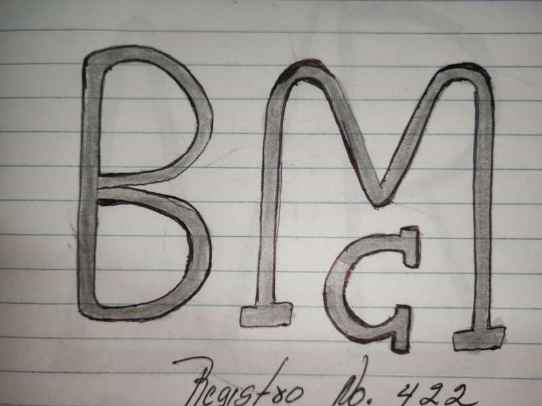 BMC
Registro No. 422